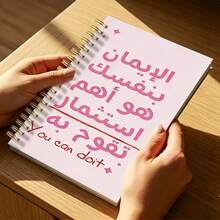 الإيمان
بنفسك
هو أهم
استثمار
تقوح به
you can doit